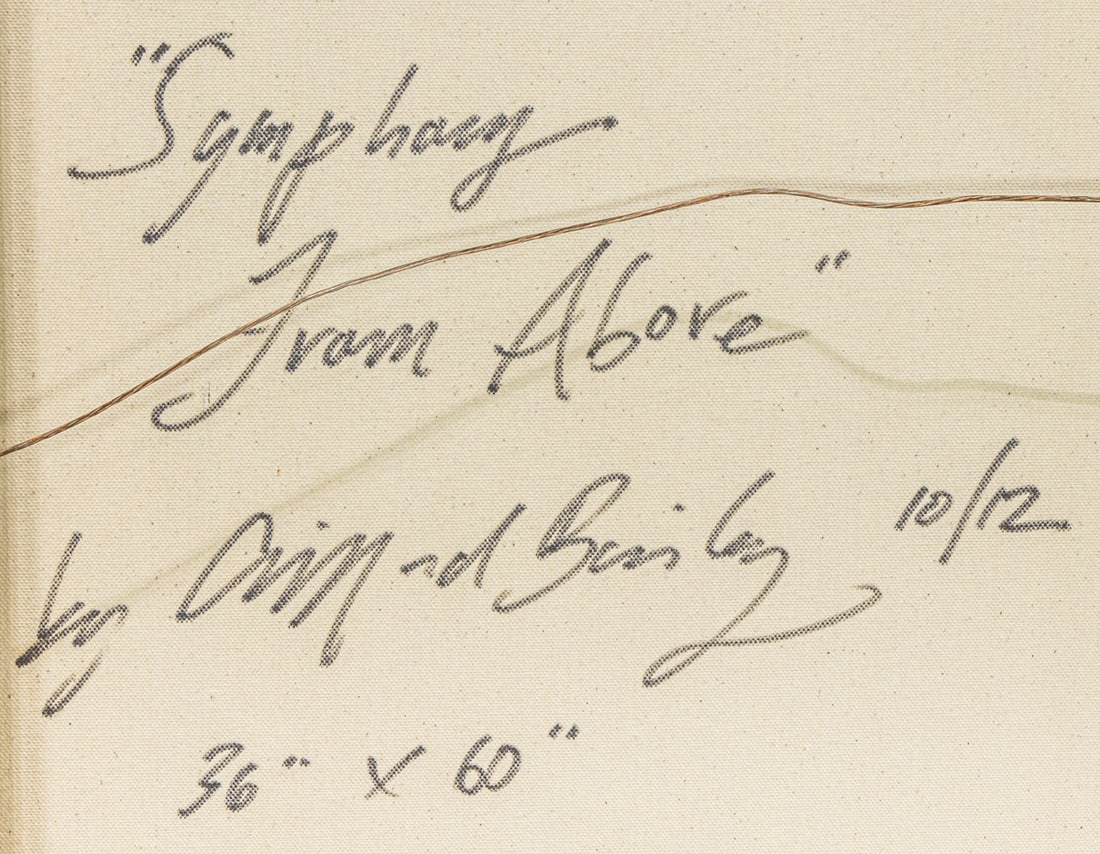 "Symphony
From Above"
by Clifford Bailey 10/12
36" x 60"